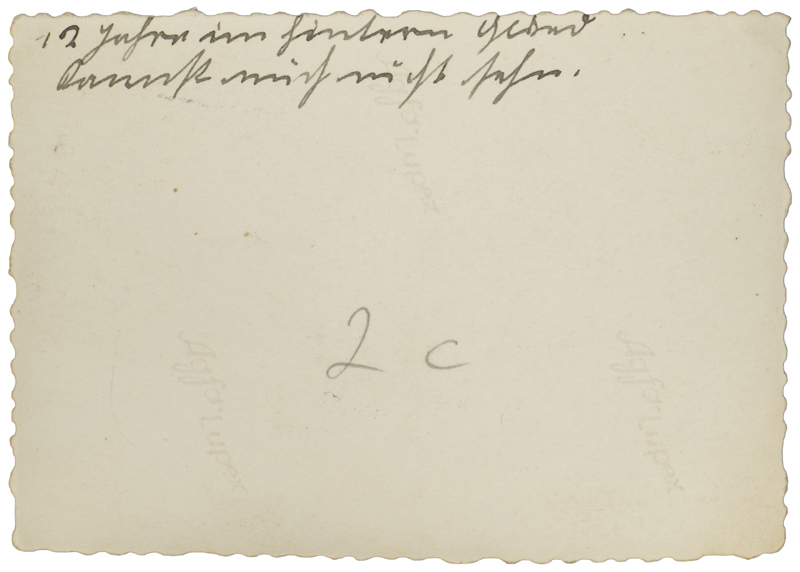 12 Jahre im hintern Glied
kannst mich nicht sehn.
2 c
Agfa Lupex
Agfa Lupex
Agfa Lupex